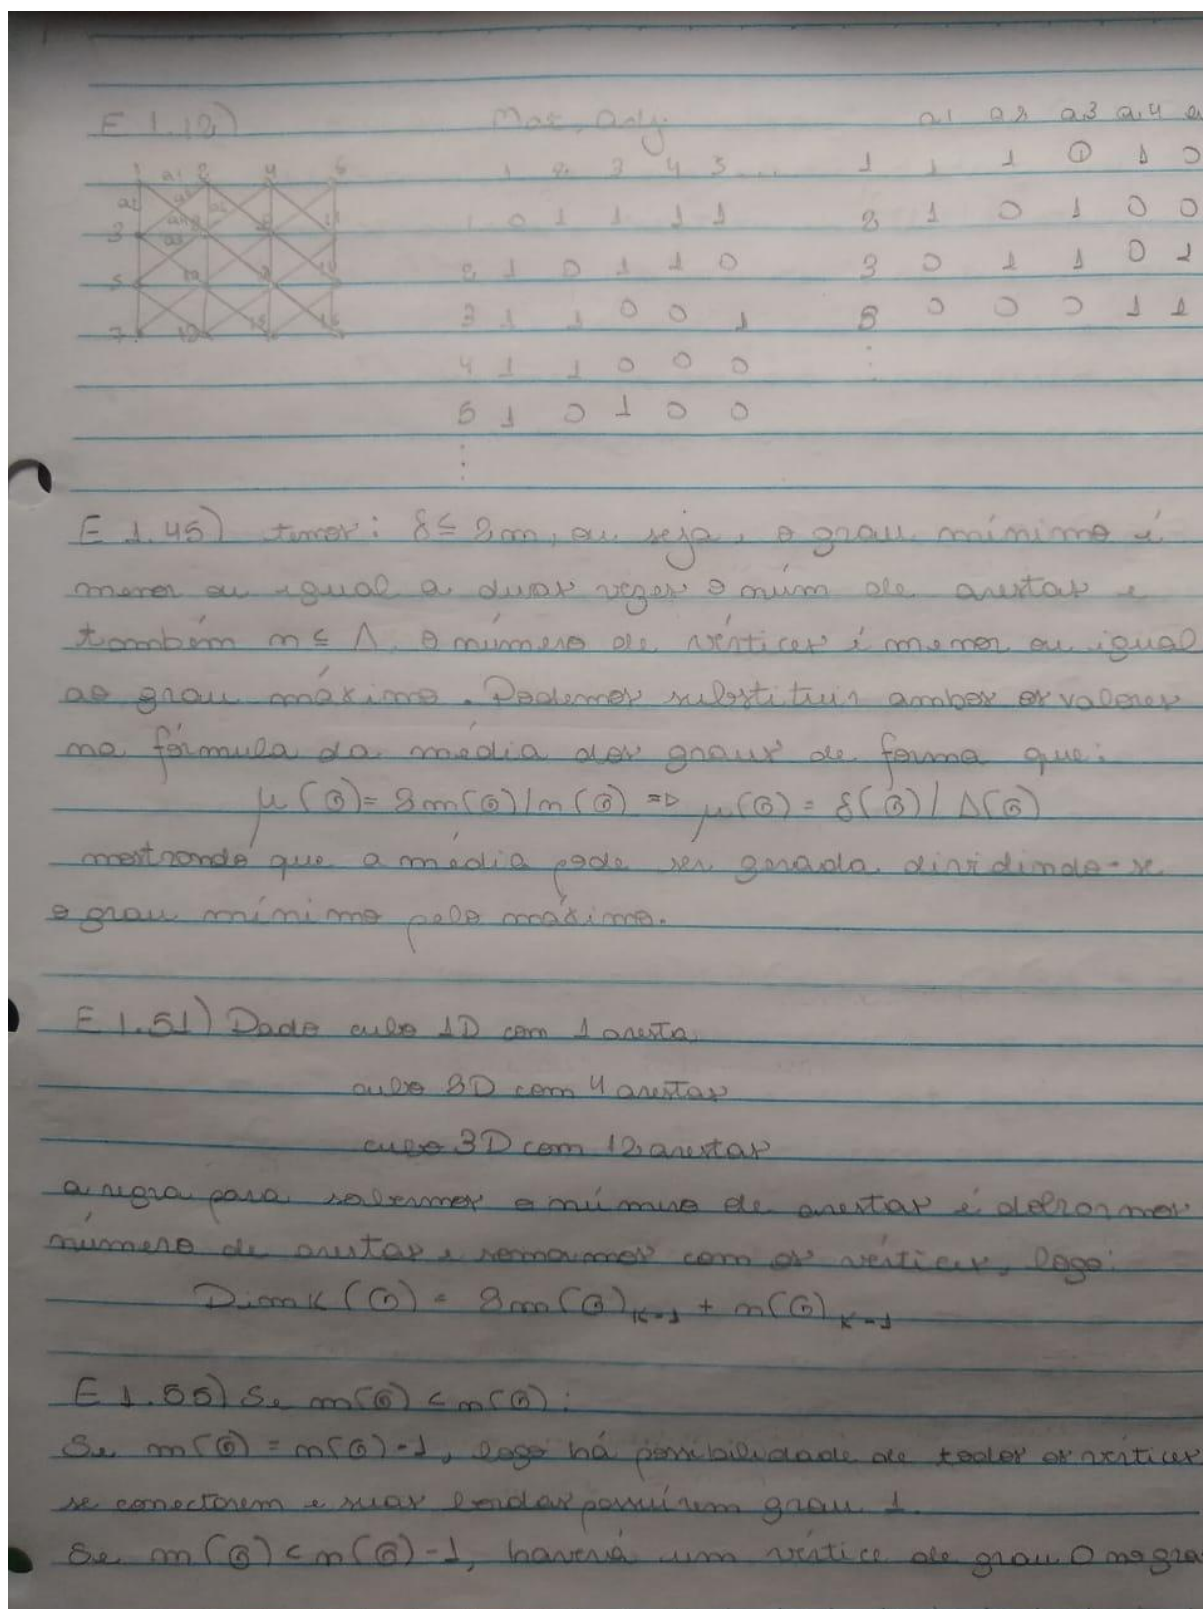 E 1.12) Mat. Adj. a1 a2 a3 a4
1 2 3 4 5 ... 1 1 1 0 1 0
1 0 1 1 1 1 2 1 0 1 0 0
2 1 0 1 1 0 3 0 1 1 0 1
3 1 1 0 0 1 5 0 0 0 1 1
4 1 1 0 0 0 ⋮
5 1 0 1 0 0
⋮
E 1.45) temos: δ ≤ 2m, ou seja, o grau mínimo é
menor ou igual a duas vezes o núm de arestas e
também n ≤ Δ. O número de vértices é menor ou igual
ao grau máximo. Podemos substituir ambos os valores
na fórmula da média dos graus de forma que:
μ(G) = 2m(G)/n(G) => μ(G) = δ(G)/Δ(G)
mostrando que a média pode ser gerada dividindo-se
o grau mínimo pelo máximo.
E 1.51) Dado cubo 1D com 1 aresta
cubo 2D com 4 arestas
cubo 3D com 12 arestas
a regra para sabermos o número de arestas é dobrarmos
número de arestas e somarmos com os vértices, logo:
Dim K (G) = 2m(G)k-1 + n(G)k-1
E 1.55) Se m(G) < n(G):
Se m(G) = n(G) - 1, logo há possibilidade de todos os vértices
se conectarem e suas bordas possuirem grau 1.
Se m(G) < n(G) - 1, haverá um vértice de grau 0 no gra